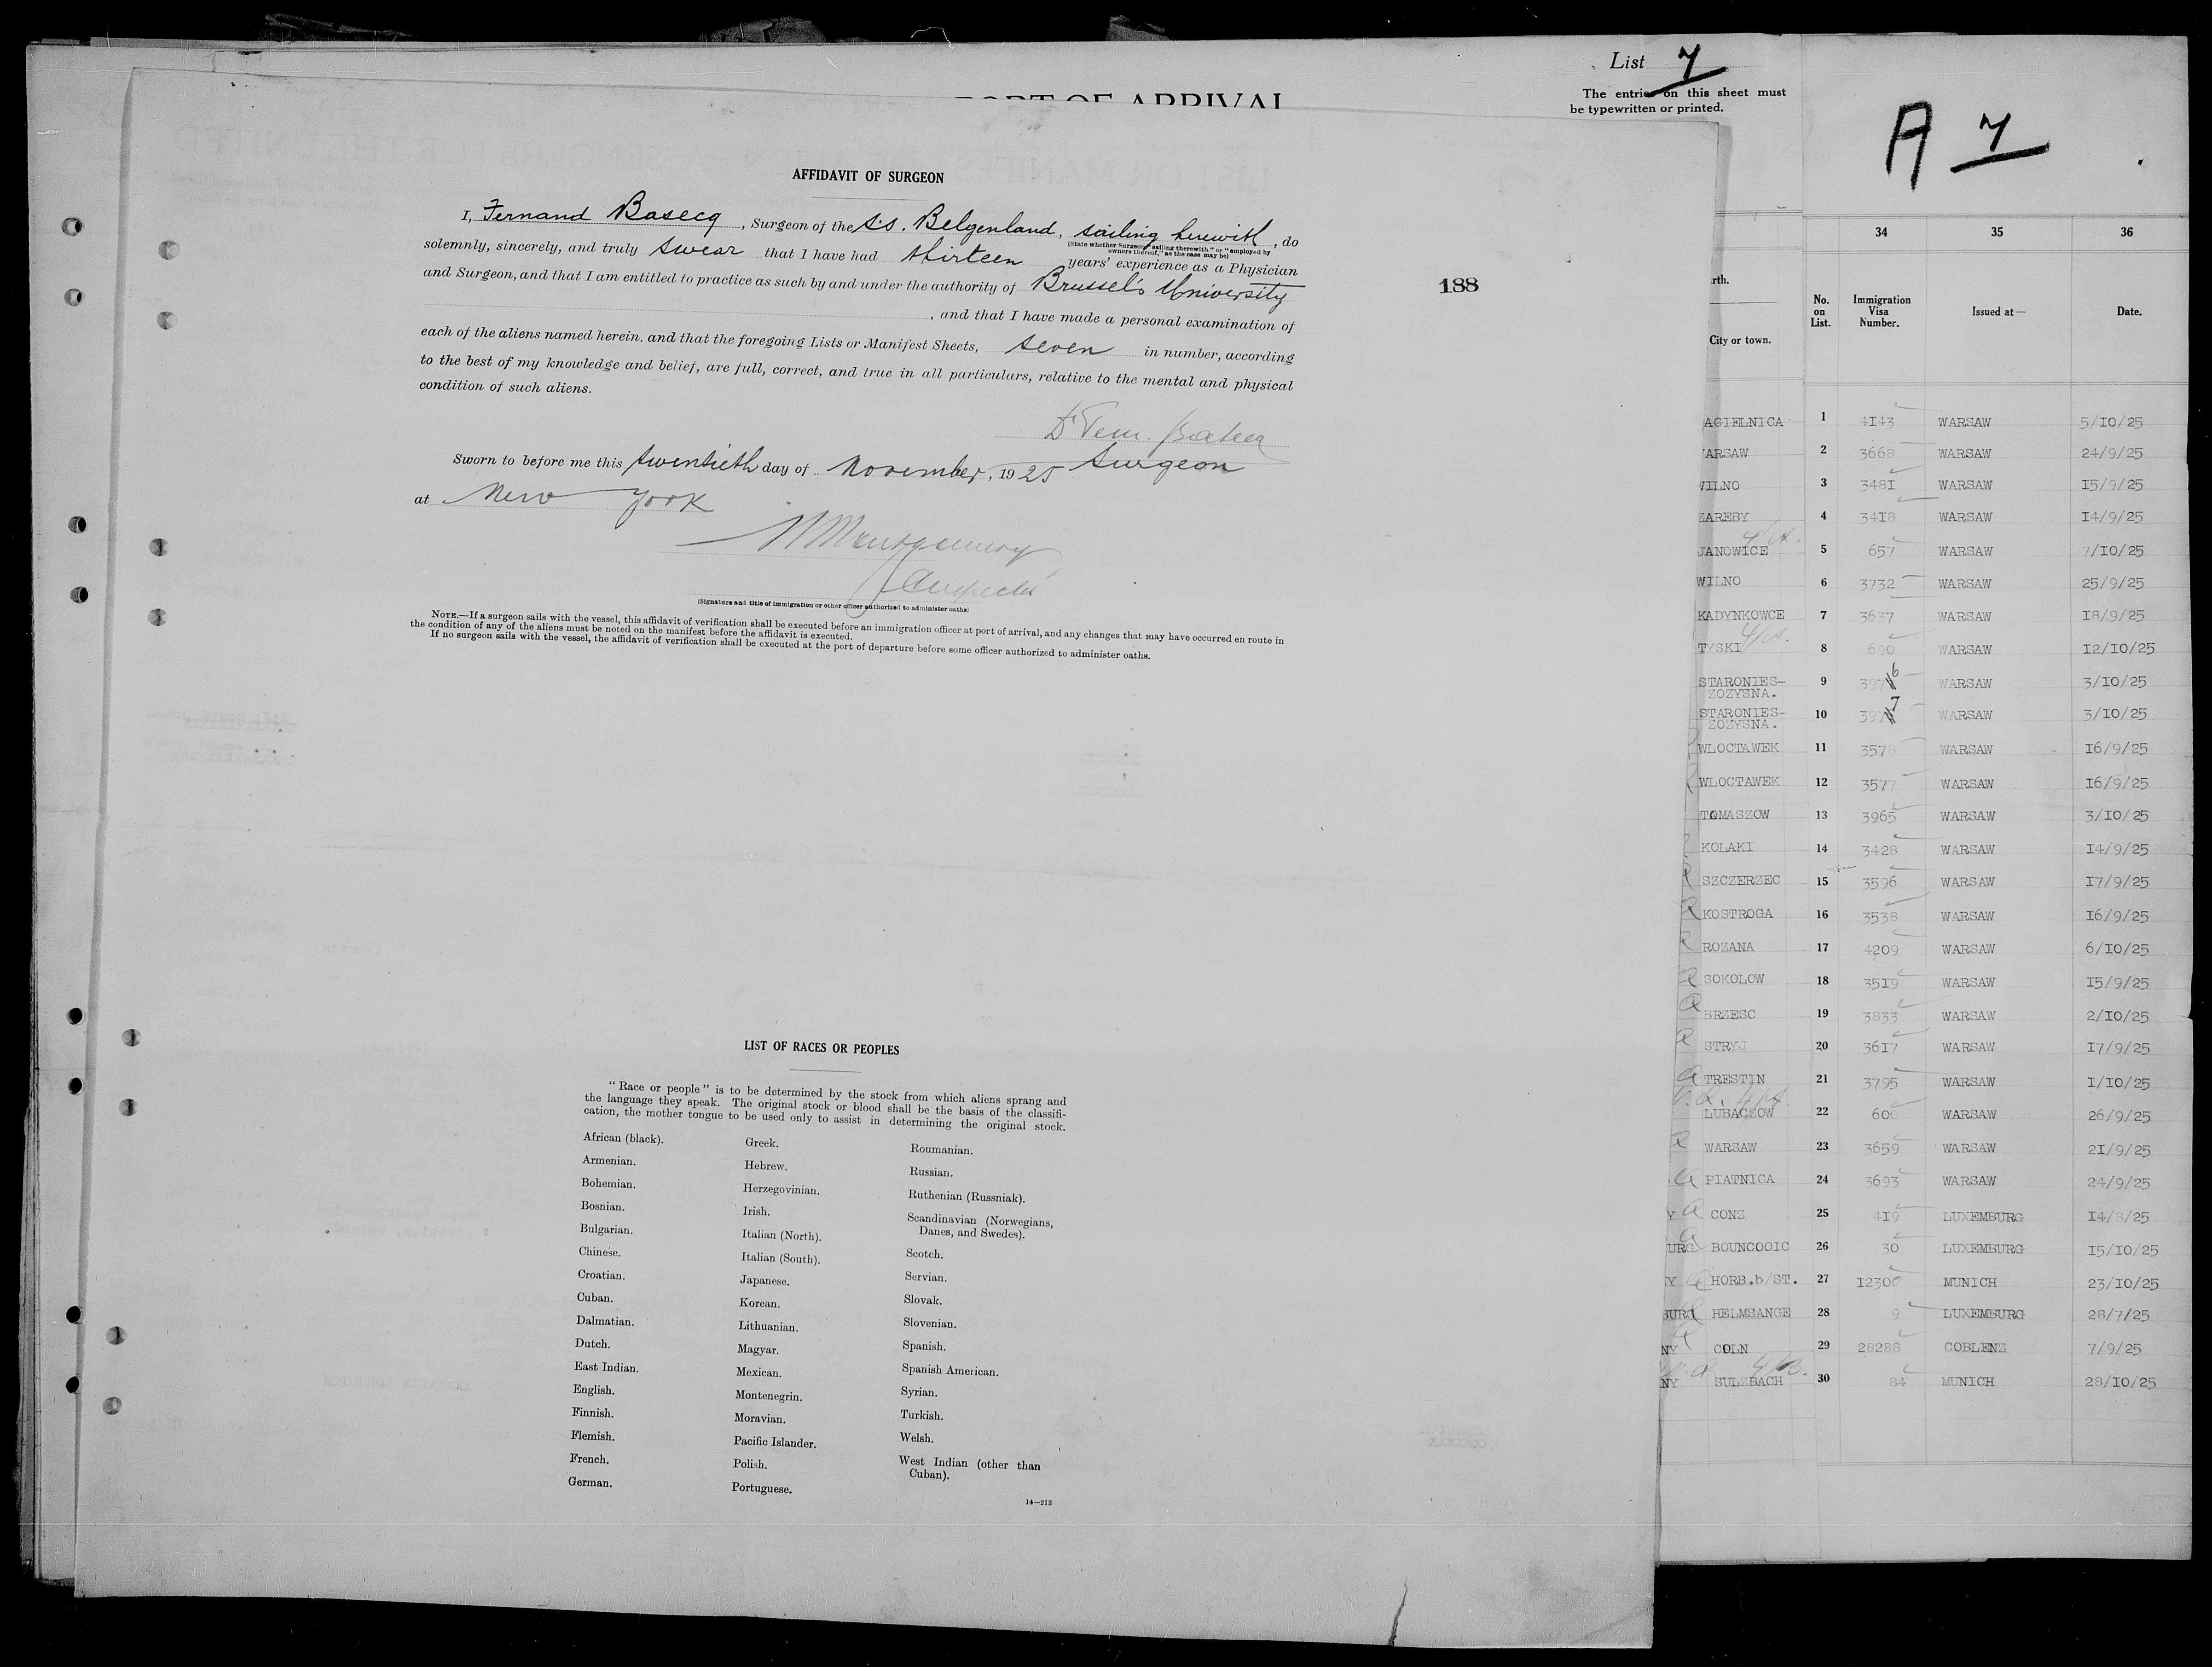 List 7
The entries on this sheet must
be typewritten or printed.
PORT OF ARRIVAL
A 7
AFFIDAVIT OF SURGEON
I, Fernand Basecq, Surgeon of the S.S. Belgenland, sailing herewith, do
(State whether Surgeon "sailing therewith" or "employed by
owners thereof," as the case may be)
solemnly, sincerely, and truly swear that I have had thirteen years' experience as a Physician
and Surgeon, and that I am entitled to practice as such by and under the authority of Brussel's University
, and that I have made a personal examination of
each of the aliens named herein, and that the foregoing Lists or Manifest Sheets, seven in number, according
to the best of my knowledge and belief, are full, correct, and true in all particulars, relative to the mental and physical
condition of such aliens.
188
Surgeon
Sworn to before me this twentieth day of November, 1925
at New York
(Signature and title of immigration or other officer authorized to administer oaths)
NOTE.—If a surgeon sails with the vessel, this affidavit of verification shall be executed before an immigration officer at port of arrival, and any changes that may have occurred en route in
the condition of any of the aliens must be noted on the manifest before the affidavit is executed.
If no surgeon sails with the vessel, the affidavit of verification shall be executed at the port of departure before some officer authorized to administer oaths.
LIST OF RACES OR PEOPLES
"Race or people" is to be determined by the stock from which aliens sprang and
the language they speak. The original stock or blood shall be the basis of the classifi-
cation, the mother tongue to be used only to assist in determining the original stock.
African (black).
Armenian.
Bohemian.
Bosnian.
Bulgarian.
Chinese.
Croatian.
Cuban.
Dalmatian.
Dutch.
East Indian.
English.
Finnish.
Flemish.
French.
German.
Greek.
Hebrew.
Herzegovinian.
Irish.
Italian (North).
Italian (South).
Japanese.
Korean.
Lithuanian.
Magyar.
Mexican.
Montenegrin.
Moravian.
Pacific Islander.
Polish.
Portuguese.
Roumanian.
Russian.
Ruthenian (Russniak).
Scandinavian (Norwegians,
Danes, and Swedes).
Scotch.
Servian.
Slovak.
Slovenian.
Spanish.
Spanish American.
Syrian.
Turkish.
Welsh.
West Indian (other than
Cuban).
14—213
34 35 36
rth.
City or town.
No. on List.
Immigration Visa Number.
Issued at—
Date.
AGIELNICA 1 4143 WARSAW 5/10/25
ARSAW 2 3668 WARSAW 24/9/25
VILNO 3 3481 WARSAW 15/9/25
ZAREBY 4 3418 WARSAW 14/9/25
JANOWICE 5 657 WARSAW 7/10/25
WILNO 6 3732 WARSAW 25/9/25
KADYNKOWCE 7 3637 WARSAW 18/9/25
TYSKI 8 690 WARSAW 12/10/25
STARONIES-
ZOZYSNA. 9 3976 WARSAW 3/10/25
STARONIES-
ZOZYSNA. 10 3977 WARSAW 3/10/25
WLOCTAWEK 11 3578 WARSAW 16/9/25
WLOCTAWEK 12 3577 WARSAW 16/9/25
TOMASZOW 13 3965 WARSAW 3/10/25
KOLAKI 14 3428 WARSAW 14/9/25
SZCZERZEC 15 3596 WARSAW 17/9/25
KOSTROGA 16 3538 WARSAW 16/9/25
ROZANA 17 4209 WARSAW 6/10/25
SOKOLOW 18 3519 WARSAW 15/9/25
BRZESC 19 3833 WARSAW 2/10/25
STRYJ 20 3617 WARSAW 17/9/25
TRESTIN 21 3795 WARSAW 1/10/25
LUBACZOW 22 600 WARSAW 26/9/25
WARSAW 23 3659 WARSAW 21/9/25
PIATNICA 24 3693 WARSAW 24/9/25
Y CONZ 25 419 LUXEMBURG 14/8/25
URG BOUNCOOIC 26 30 LUXEMBURG 15/10/25
Y HORB.b/ST. 27 12300 MUNICH 23/10/25
BURG HELMSANGE 28 9 LUXEMBURG 28/7/25
NY COLN 29 28288 COBLENZ 7/9/25
NY SULZBACH 30 84 MUNICH 28/10/25